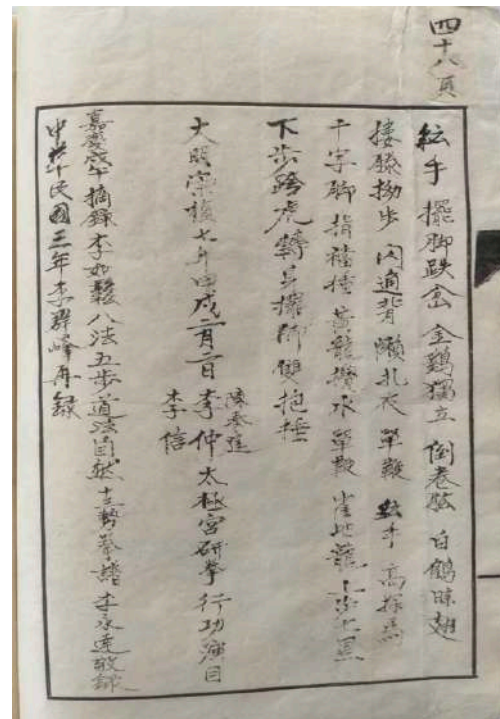 四十八頁
紜手 擺脚跌岔 金鷄獨立 倒卷肱 白鶴晾翅
摟膝拗步 闪通背 懒扎衣 單鞭 紜手 高探馬
十字脚 指襠捶 黃龍攪水 單鞭 雀地龍 上步七星
下步跨虎 轉身擺脚 雙抱捶
大明崇禎七年甲戌二月二日 李仲 太極宮研拳行功演目
陳奏廷
李信
嘉慶戊午摘錄李如鬆八法五步道法自然十三勢拳譜李永達敬錄
中華民國三年李群峰再錄